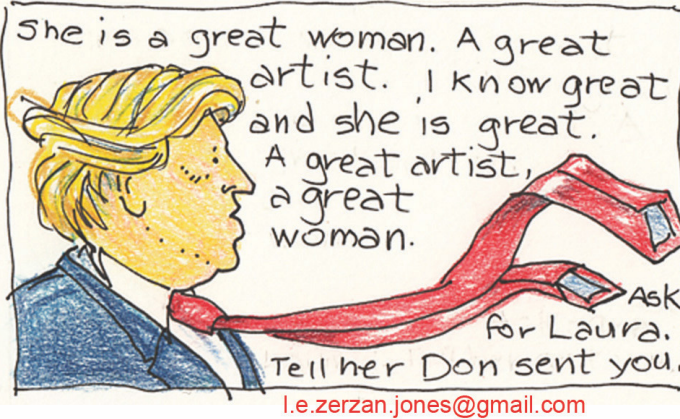 She is a great woman. A great
artist. I know great
and she is great.
A great artist,
a great
woman.
Ask
for Laura.
Tell her Don sent you.
l.e.zerzan.jones@gmail.com